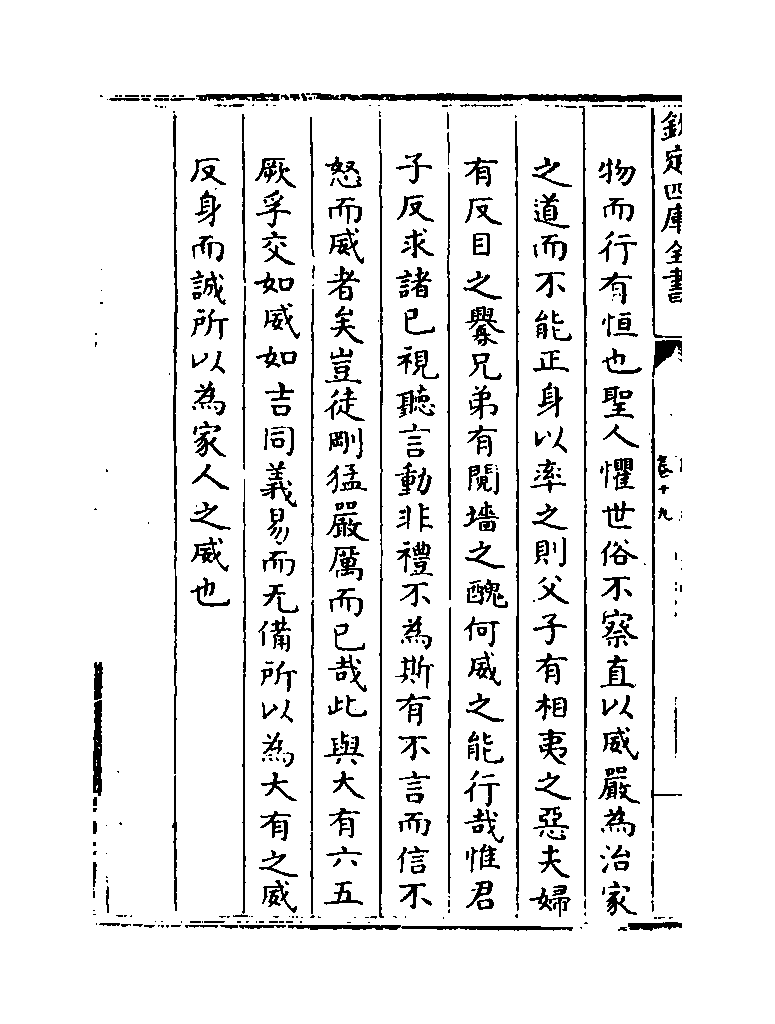 欽定四庫全書
卷十九
物而行有恒也聖人懼世俗不察直以威嚴為治家
之道而不能正身以率之則父子有相夷之惡夫婦
有反目之釁兄弟有鬩墻之醜何威之能行哉惟君
子反求諸已視聽言動非禮不為斯有不言而信不
怒而威者矣豈徒剛猛嚴厲而已哉此與大有六五
厥孚交如威如吉同義易而无備所以為大有之威
反身而誠所以為家人之威也